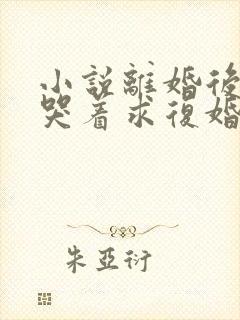 小説離婚後
哭着求復婚
朱亞衍